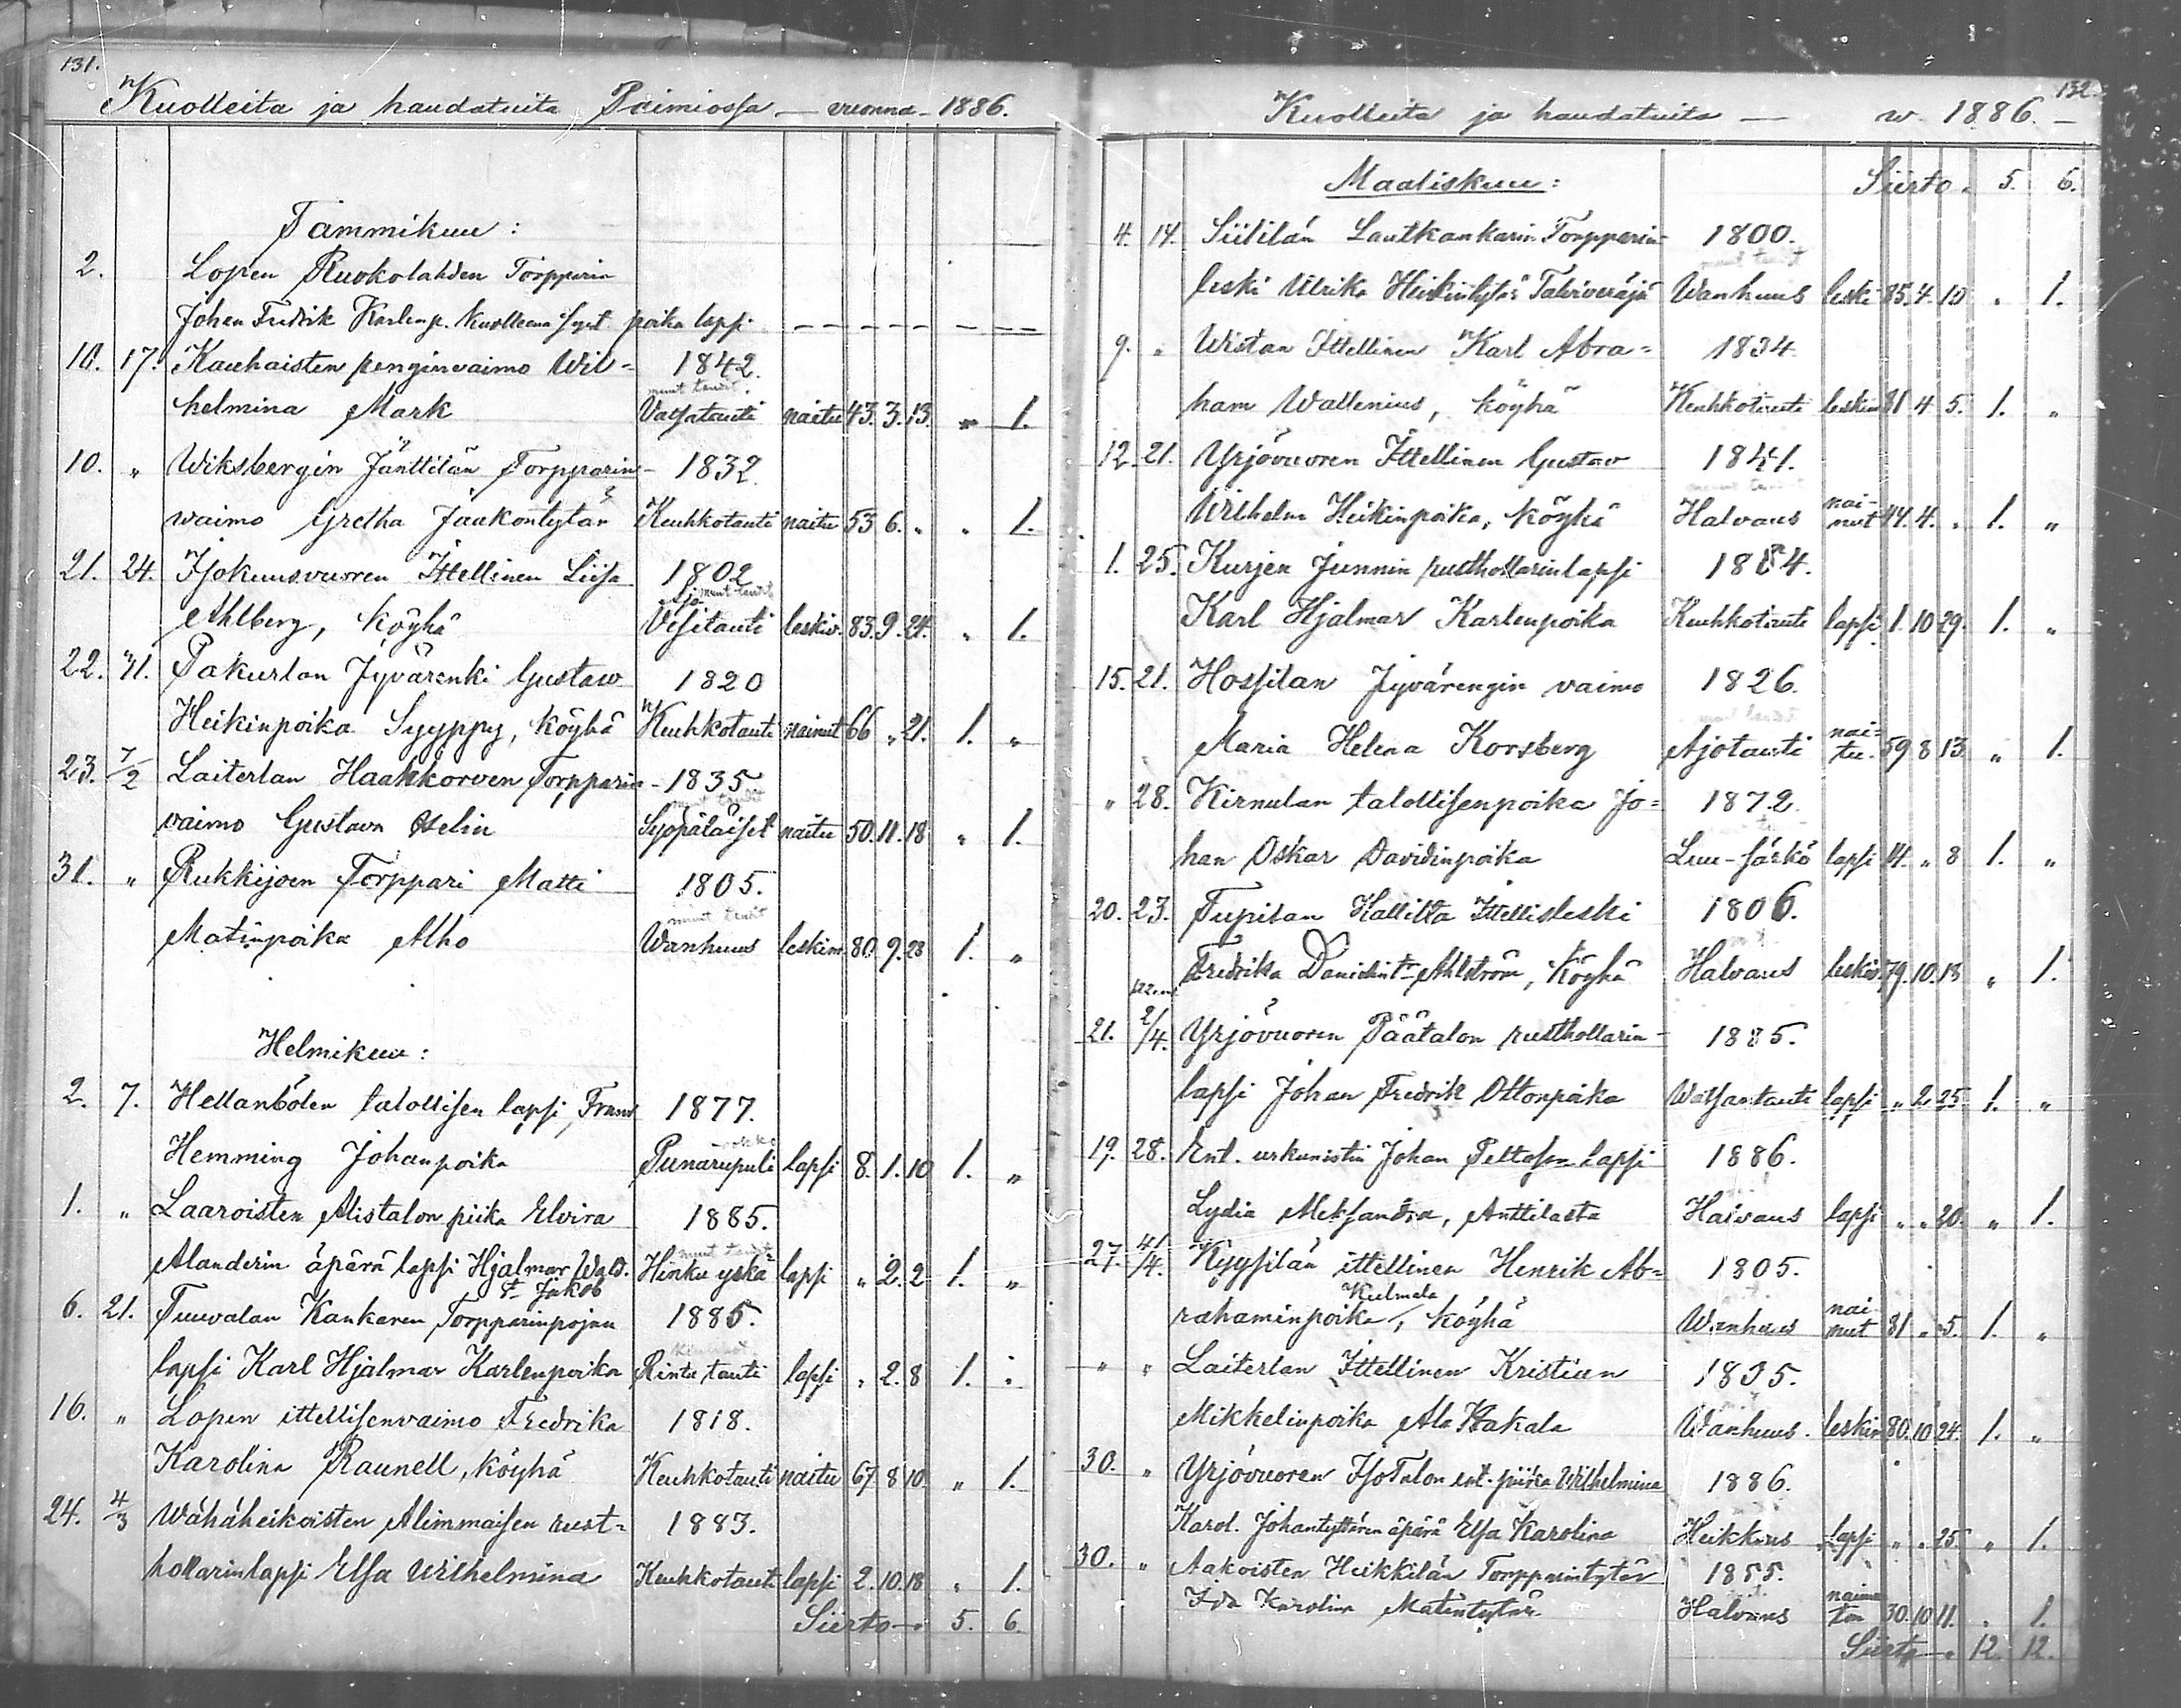 131.
Kuolleita ja haudatuita Paimiossa — vuonna — 1886.
Tammikuu:
2. Lopen Ruokolahden Torpparin
Johan Fredrik Karlenp. kuolleena synt. poika lapsi
10. 17. Kauhaisten renginvaimo Wil- 1842.
muut taudit.
helmina Mark Vatsatauti naitu 43. 3. 13. „ 1.
10. „ Wiksbergin Jänttilän Torpparin- 1832.
waimo Gretha Jaakontytär Keuhkotauti naitu 53 6. „ „ 1.
21. 24. Isokuusvuoren Ittellinen Liisa 1802
muut taudit
Ahlberg, köyhä Vesitauti leskiv. 83. 9. 24. „ 1.
22. 31. Pakurlan Jyvärenki Gustaw 1820
Heikinpoika Syyppy, köyhä Keuhkotauti nainut 66 „ 21. 1. „
23. 7/2 Laiterlan Haakkorven Torpparin- 1835
muut taudit
vaimo Gustava Helin Syöpäläiset naitu 50. 11. 18 „ 1.
31. „ Rukkijoen Torppari Matti 1805.
muut taudit
Matinpoika Alho Wanhuus leskim. 80. 9. 28 1. „
Helmikuu:
2. 7. Hellanbölen talollisen lapsi, Frans 1877.
Hemming Johanpoika Punarupuli lapsi 8. 1. 10 1. „
1. „ Laaroisten Alistalon piika Elvira 1885.
muut taudit
Alanderin äpärä lapsi Hjalmar Wald. Hinku yskä lapsi „ 2. 2 1. „
Jakob
6. 21. Tuuvalan Kankaren Torpparinpojan 1885.
lapsi Karl Hjalmar Karlenpoika Rinta tauti lapsi „ 2. 8 1. „
16. „ Lopen ittellisenvaimo Fredrika 1818.
Karolina Raunell, köyhä Keuhkotauti naitu 67 8 10. „ 1.
24. 4/3 Wähäheikoisten Alimmaisen rust- 1883.
hollarinlapsi Elsa Wilhelmina Keuhkotauti lapsi 2. 10. 18 „ 1.
Siirto — 5. 6.
132.
Kuolleita ja haudatuita — w. 1886. —
Maaliskuu: Siirto. 5. 6.
4. 14. Siitilän Lautkankarin Torpparin- 1800.
muut taudit
leski Ulrika Heikintytär Talviveräjä Wanhuus leski 85. 4. 10 „ 1.
9. „ Wistan Ittellinen Karl Abra- 1834.
ham Wallenius, köyhä Keuhkotauti leskim 51 4 5. 1. „
12. 21. Yrjövuoren Ittellinen Gustav 1841.
muut taudit
Wilhelm Heikinpoika, köyhä Halvaus nai-nut 44. 4. „ 1. „
1. 25. Kurjen Junnin rusthollarinlapsi 1884.
Karl Hjalmar Karlenpoika Keuhkotauti lapsi 1. 10 29. 1. „
15. 21. Hossilan Jyvärengin vaimo 1826.
muut taudit
Maria Helena Korsberg Ajotauti nai-tu. 59 8 13. „ 1.
„ 28. Kirnulan talollisenpoika Jo- 1872.
han Oskar Davidinpoika Luu-särkö lapsi 14. „ 8 1. „
20. 23. Tupilan Hallilta Ittellisleski 1806.
Fredrika Davidint. Ahlström, köyhä Halvaus leskiv. 79. 10. 18 „ 1.
21. 2/4. Yrjövuoren Päätalon rusthollarin- 1885.
lapsi Johan Fredrik Ottonpoika Watsantauti lapsi „ 2 25. 1. „
19. 28. Ent. urkunistin Johan Peltosen lapsi 1886.
Lydia Aleksandra, Anttilasta Halvaus lapsi „ „ 20. „ 1.
27. 4/4. Kyysilän ittellinen Henrik Ab- 1805.
Kulmala
rahaminpoika, köyhä Wanhuus nai-nut 81 „ 5. 1. „
„ „ Laiterlan Ittellinen Kristian 1805.
Mikkelinpoika Ala Hakala Wanhuus. leskim 80. 10 24. 1. „
30. „ Yrjövuoren IsoTalon ent. piika Wilhelmina 1886.
Karol. Johantyttären äpärä Elsa Karolina Heikkous lapsi „ „ 25. „ 1.
30. „ Aakoisten Heikkilän Torpparintytär 1855.
Ida Karolina Matintytär Halvaus naima-ton 30. 10 11. „ 1.
Siirto — 12. 12.